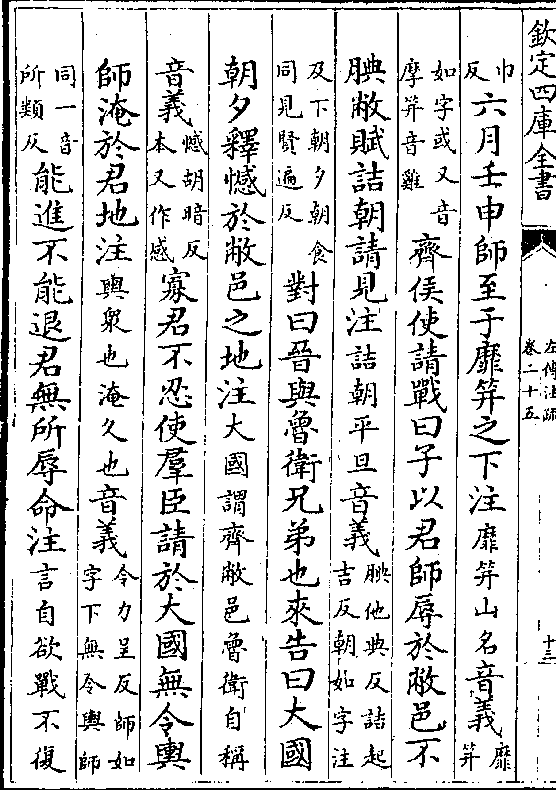 欽定四庫全書
巾反六月壬申師至于靡筓之下注靡筓山名音義靡筓
如字或又音摩筓音雞齊侯使請戰曰子以君師辱於敝邑不
腆敝賦詰朝請見注詰朝平旦音義腆他典反詰起吉反朝如字注
及下朝夕朝食同見賢遍反對曰晉與魯衛兄弟也來告曰大國
朝夕釋憾於敝邑之地注大國謂齊敝邑魯衛自稱
音義憾胡暗反本又作感寡君不忍使羣臣請於大國無令輿
師淹於君地注輿衆也淹久也音義令力呈反師如字下無令輿師
同一音所類反能進不能退君無所辱命注言自欲戰不復
左傳注疏
卷二十五
十三